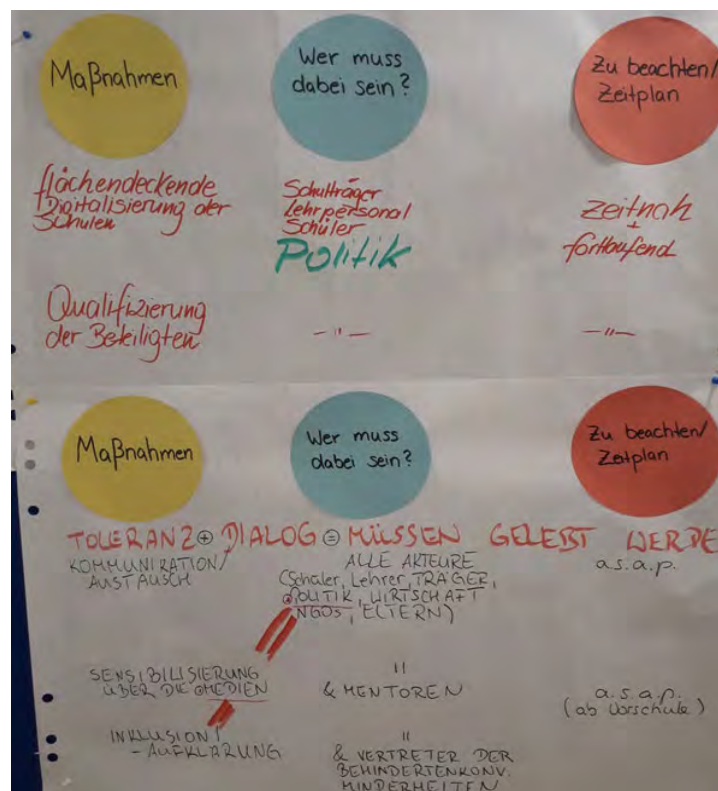 Maßnahmen
Wer muss
dabei sein?
Zu beachten/
Zeitplan
flächendeckende
Digitalisierung der
Schulen
Schulträger
Lehrpersonal
Schüler
Politik
zeitnah
+
fortlaufend
Qualifizierung
der Beteiligten
— " —
— " —
Maßnahmen
Wer muss
dabei sein?
Zu beachten/
Zeitplan
TOLERANZ + DIALOG = MÜSSEN GELEBT WERDE
KOMMUNIKATION/
AUSTAUSCH
ALLE AKTEURE
(Schüler, Lehrer, TRÄGER,
POLITIK, WIRTSCHAFT
NGOs, ELTERN)
a.s.a.p.
SENSIBILISIERUNG
ÜBER DIE MEDIEN
"
& MENTOREN
a.s.a.p.
(ab Vorschule)
INKLUSION/
- AUFKLÄRUNG
"
& VERTRETER DER
BEHINDERTENKONV.
MINDERHEITEN